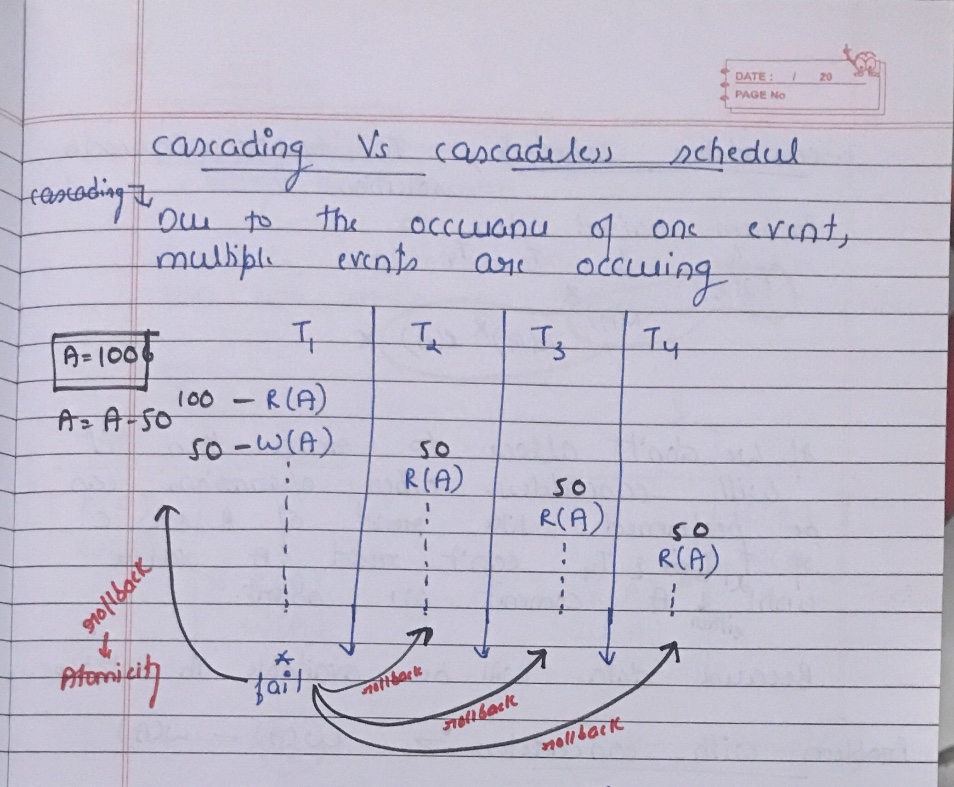 DATE: / 20
PAGE No
cascading Vs cascadeless schedul
cascading
Due to the occurance of one event,
multiple events are occuring
T1 T2 T3 T4
A=100
100 - R(A)
A = A-50
50 - W(A)
50
R(A)
50
R(A)
50
R(A)
rollback
Atomicity
*
fail
rollback
rollback
rollback